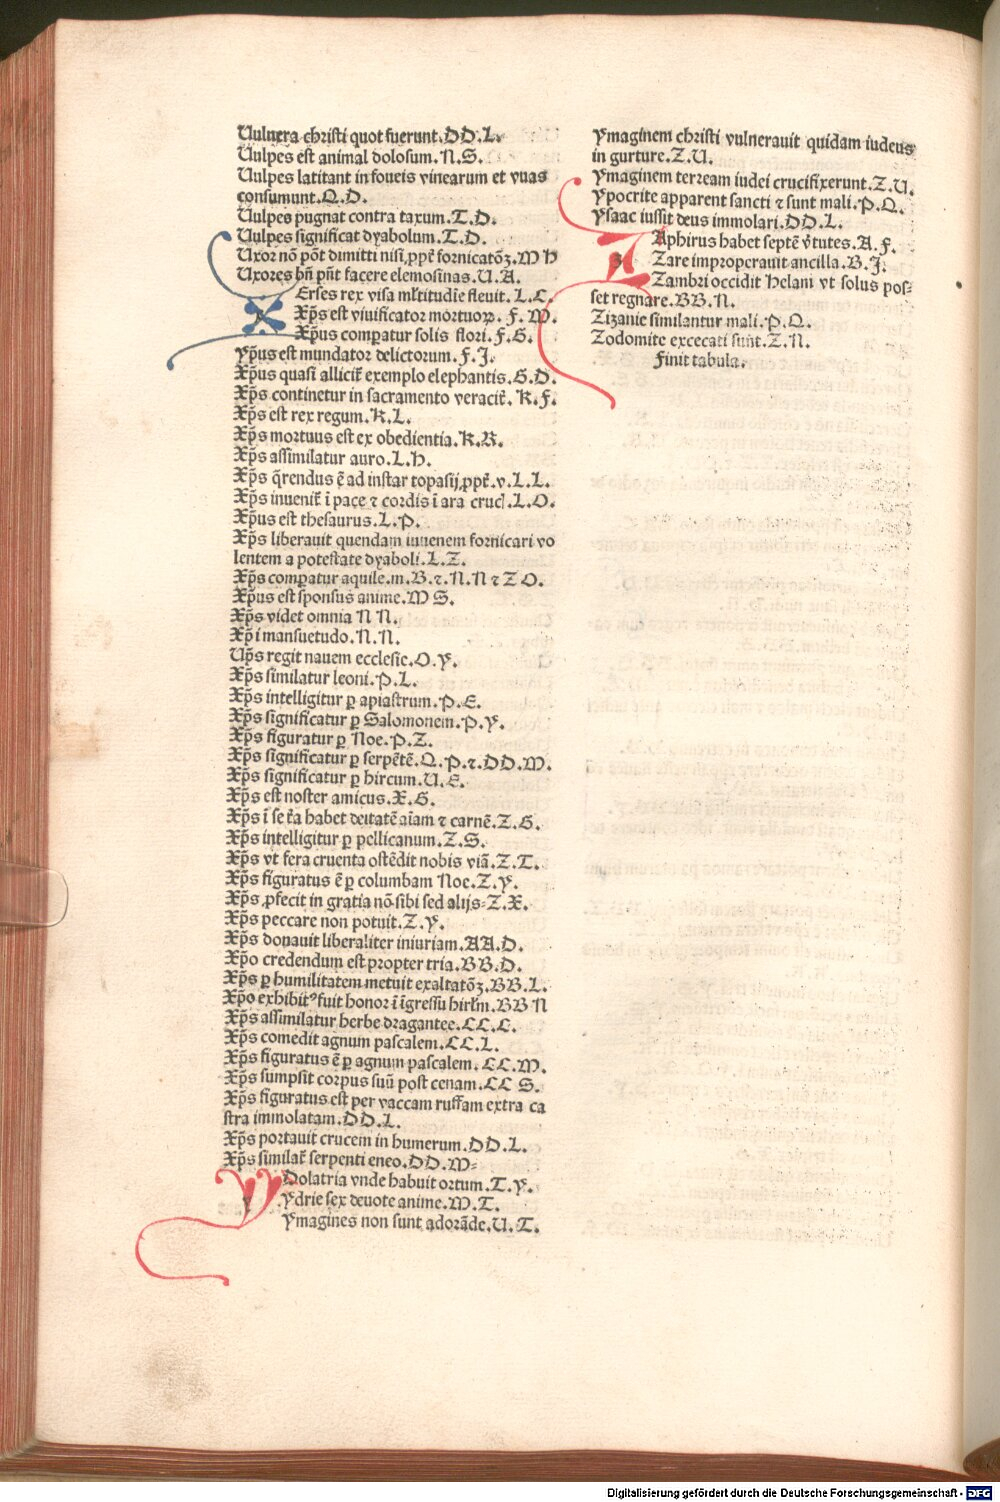 Uulnera christi quot fuerunt.DD.L.
Uulpes est animal dolosum.N.S.
Uulpes latitant in foueis vinearum et vuas
consumunt.Q.D.
Uulpes pugnat contra taxum.T.D.
Uulpes significat dyabolum.T.D.
Uxor nõ põt dimitti nisi ꝓpẽ fornicatõꝫ.M H
Uxores bñ pñt facere elemosinas.U.A.
Erses rex visa mltitudĩe fleuit.I.C.
Xp̃s est viuificator mortuoꝝ.F.M.
Xp̃us comꝑatur solis flori.F.G.
Xp̃us est mundator delictorum.F.I.
Xp̃us quasi allicit̃ exemplo elephantis.G.D.
Xp̃s continetur in sacramento veracit̃.K.F.
Xp̃s est rex regum.K.L.
Xp̃s mortuus est ex obedientia.K.R.
Xp̃s assimilatur auro.L.H.
Xp̃s q̃rendus ẽ ad instar topasij,ꝓpt̃.v.L.L.
Xp̃s inuenit̃ ĩ pace ⁊ cordis ĩ ara cruc.L.O.
Xp̃us est thesaurus.L.P.
Xp̃s liberauit quendam iuuenem fornicari vo
lentem a potestate dyaboli.L.Z.
Xp̃s comꝑatur aquile.m.B.⁊.N.N ⁊ Z O.
Xp̃us est sponsus anime.M S.
Xp̃s videt omnia N N.
Xp̃i mansuetudo.N.N.
Up̃s regit nauem ecclesie.O.Y.
Xp̃s similatur leoni.P.L.
Xp̃s intelligitur ꝑ apiastrum.P.E.
Xp̃s significatur ꝑ Salomonem.P.Y.
Xp̃s figuratur ꝑ Noe.P.Z.
Xp̃s significatur ꝑ serpẽtẽ.Q.P.⁊.DD.M.
Xp̃s significatur ꝑ hircum.U.E.
Xp̃s est noster amicus.X.G.
Xp̃s ĩ se tr̃a habet deitatẽ aĩam ⁊ carnẽ.Z.G.
Xp̃s intelligitur ꝑ pellicanum.Z.S.
Xp̃s vt fera cruenta ostẽdit nobis viã.Z.T.
Xp̃s figuratus ẽ ꝑ columbam Noe.Z.Y.
Xp̃s ꝓfecit in gratia nõ sibi sed alijs⸗Z.X.
Xp̃s peccare non potuit.Z.Y.
Xp̃s donauit liberaliter iniuriam.AA.D.
Xp̃o credendum est propter tria.BB.D.
Xp̃s ꝑ humilitatem metuit exaltatõꝫ.BB.L.
Xp̃o exhibitꝰ fuit honor ĩ ĩgressu hirlm̃.BB N
Xp̃s assimilatur herbe dragantee.CC.C.
Xp̃s comedit agnum pascalem.CC.L.
Xp̃s figuratus ẽ ꝑ agnum pascalem.CC.M.
Xp̃s sumpsit corpus suũ post cenam.CC S.
Xp̃s figuratus est per vaccam ruffam extra ca
stra immolatam.DD.L.
Xp̃s portauit crucem in humerum.DD.L.
Xp̃s similat̃ serpenti eneo.DD.M⸗
Y Dolatria vnde habuit ortum.T.Y.
Ydrie sex deuote anime.M.T.
Ymagines non sunt adorãde.U.T.
Ymaginem christi vulnerauit quidam iudeus
in gurture.Z.U.
Ymaginem terream iudei crucifixerunt.Z.U.
Ypocrite apparent sancti ⁊ sunt mali.P.Q.
Ysaac iussit deus immolari.DD.L.
Z Aphirus habet septẽ v̾tutes.A.F.
Zare improperauit ancilla.B.I.
Zambri occidit Helam vt solus pos⸗
set regnare.BB.N.
Zizanie similantur mali.P.Q.
Zodomite excecati sunt.Z.N.
Finit tabula.
Digitalisierung gefördert durch die Deutsche Forschungsgemeinschaft - DFG